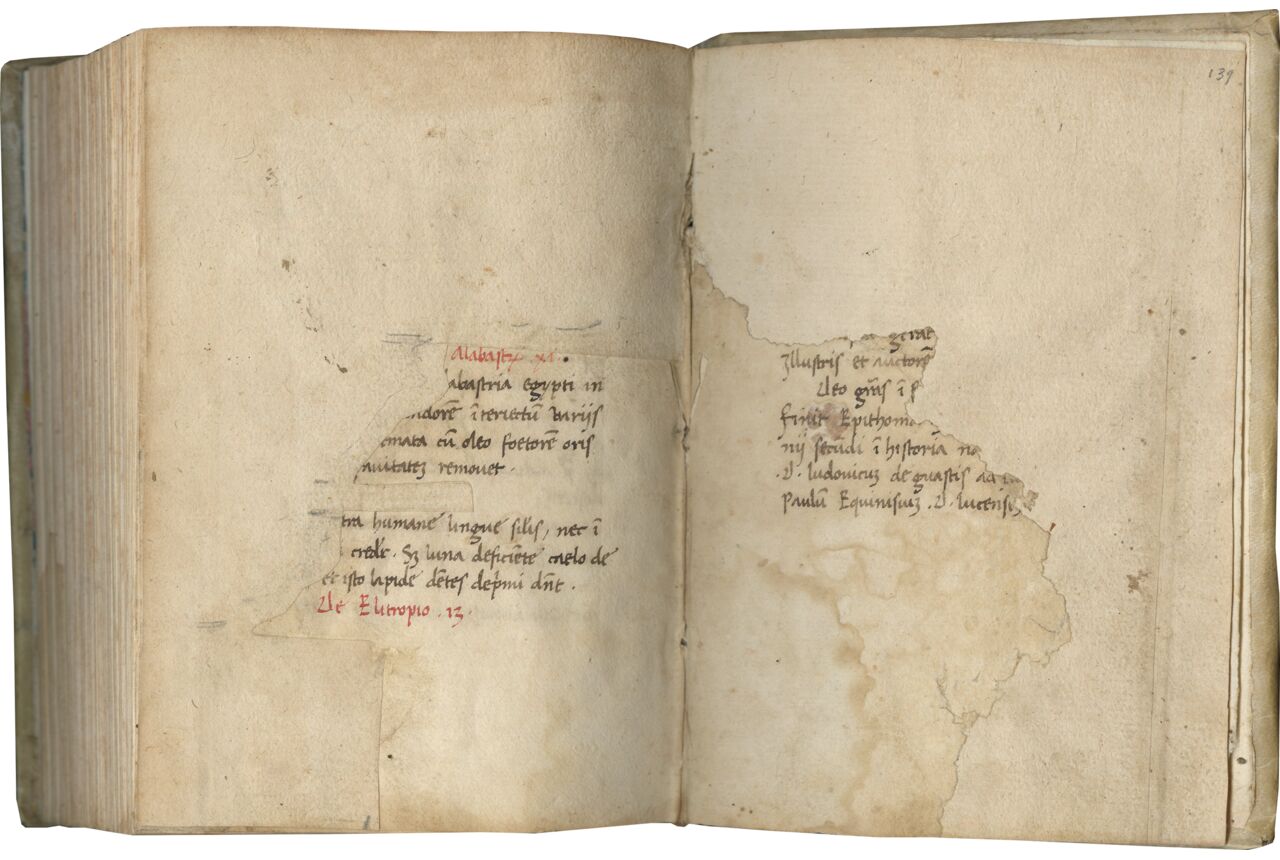 Alabastr xi.
abastria egypti in
ndorē ĩteriectū uariis
mata cū oleo foetorē oris
auitatem remouet.
tra humane lingue silis, nec ĩ
crede. Sz luna deficiēte caelo de
et isto lapide dētes depmi dnt.
De Elitropio. 13.
139
gerae
Illustris et auctor
Deo grās ĩ
finit Epithom
nij secūdi ĩ historia na
.D. ludouicuz de guastis ad
Paulū Equinisuz .D. lucensis